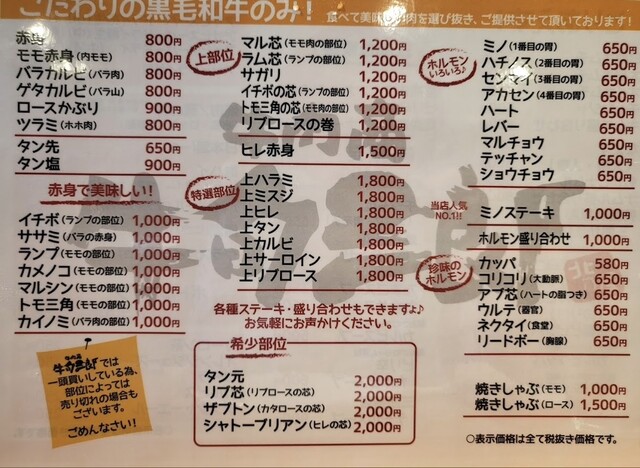 こだわりの黒毛和牛のみ!
食べて美味しいお肉を選び抜き、ご提供させて頂いております!
赤身 800円
モモ赤身(内モモ) 800円
バラカルビ(バラ肉) 800円
ゲタカルビ(バラ山) 800円
ロースかぶり 900円
ツラミ(ホホ肉) 800円
タン先 650円
タン塩 900円
赤身で美味しい!
イチボ(ランプの部位) 1,000円
ササミ(バラの赤身) 1,000円
ランプ(モモの部位) 1,000円
カメノコ(モモの部位) 1,000円
マルシン(モモの部位) 1,000円
トモ三角(モモの部位) 1,000円
カイノミ(バラ肉の部位) 1,000円
では
一頭買いしている為、
部位によっては
売り切れの場合も
ございます。
ごめんなさい!
上部位
マル芯(モモ肉の部位) 1,200円
ラム芯(ランプの部位) 1,200円
サガリ 1,200円
イチボの芯(ランプの部位) 1,200円
トモ三角の芯(モモ肉の部位) 1,200円
リブロースの巻 1,200円
ヒレ赤身 1,500円
特選部位
上ハラミ 1,800円
上ミスジ 1,800円
上ヒレ 1,800円
上タン 1,800円
上カルビ 1,800円
上サーロイン 1,800円
上リブロース 1,800円
各種ステーキ・盛り合わせもできますよ♪
お気軽にお声かけください。
希少部位
タン元 2,000円
リブ芯(リブロースの芯) 2,000円
ザブトン(カタロースの芯) 2,000円
シャトーブリアン(ヒレの芯) 2,000円
ホルモンいろいろ♪
ミノ(1番目の胃) 650円
ハチノス(2番目の胃) 650円
センマイ(3番目の胃) 650円
アカセン(4番目の胃) 650円
ハート 650円
レバー 650円
マルチョウ 650円
テッチャン 650円
ショウチョウ 650円
当店人気NO.1!!
ミノステーキ 1,000円
ホルモン盛り合わせ 1,000円
珍味のホルモン
カッパ 580円
コリコリ(大動脈) 650円
アブ芯(ハートの脂つき) 650円
ウルテ(器官) 650円
ネクタイ(食堂) 650円
リードボー(胸腺) 650円
焼きしゃぶ(モモ) 1,000円
焼きしゃぶ(ロース) 1,500円
○表示価格は全て税抜き価格です。